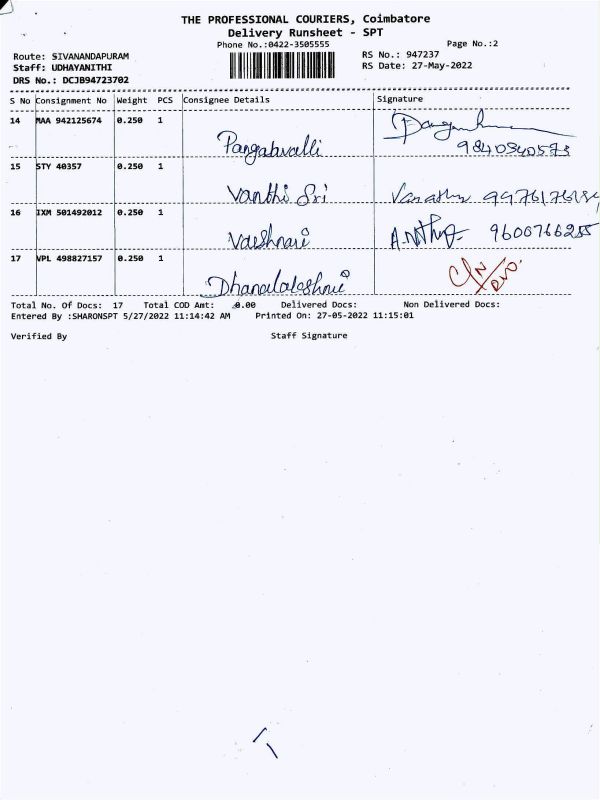 THE PROFESSIONAL COURIERS, Coimbatore
Delivery Runsheet - SPT
Phone No.:0422-3505555 Page No.:2
Route: SIVANANDAPURAM RS No.: 947237
Staff: UDHAYANITHI RS Date: 27-May-2022
DRS No.: DCJB94723702
S No Consignment No Weight PCS Consignee Details Signature
14 MAA 942125674 0.250 1
Pangabvalli 9840540573
15 STY 40357 0.250 1
Vanthi Sri
16 IXM 501492012 0.250 1
Vaishnavi 9600766255
17 VPL 498827157 0.250 1
C/N
Total No. Of Docs: 17 Total COD Amt: 0.00 Delivered Docs: Non Delivered Docs:
Entered By :SHARONSPT 5/27/2022 11:14:42 AM Printed On: 27-05-2022 11:15:01
Verified By Staff Signature